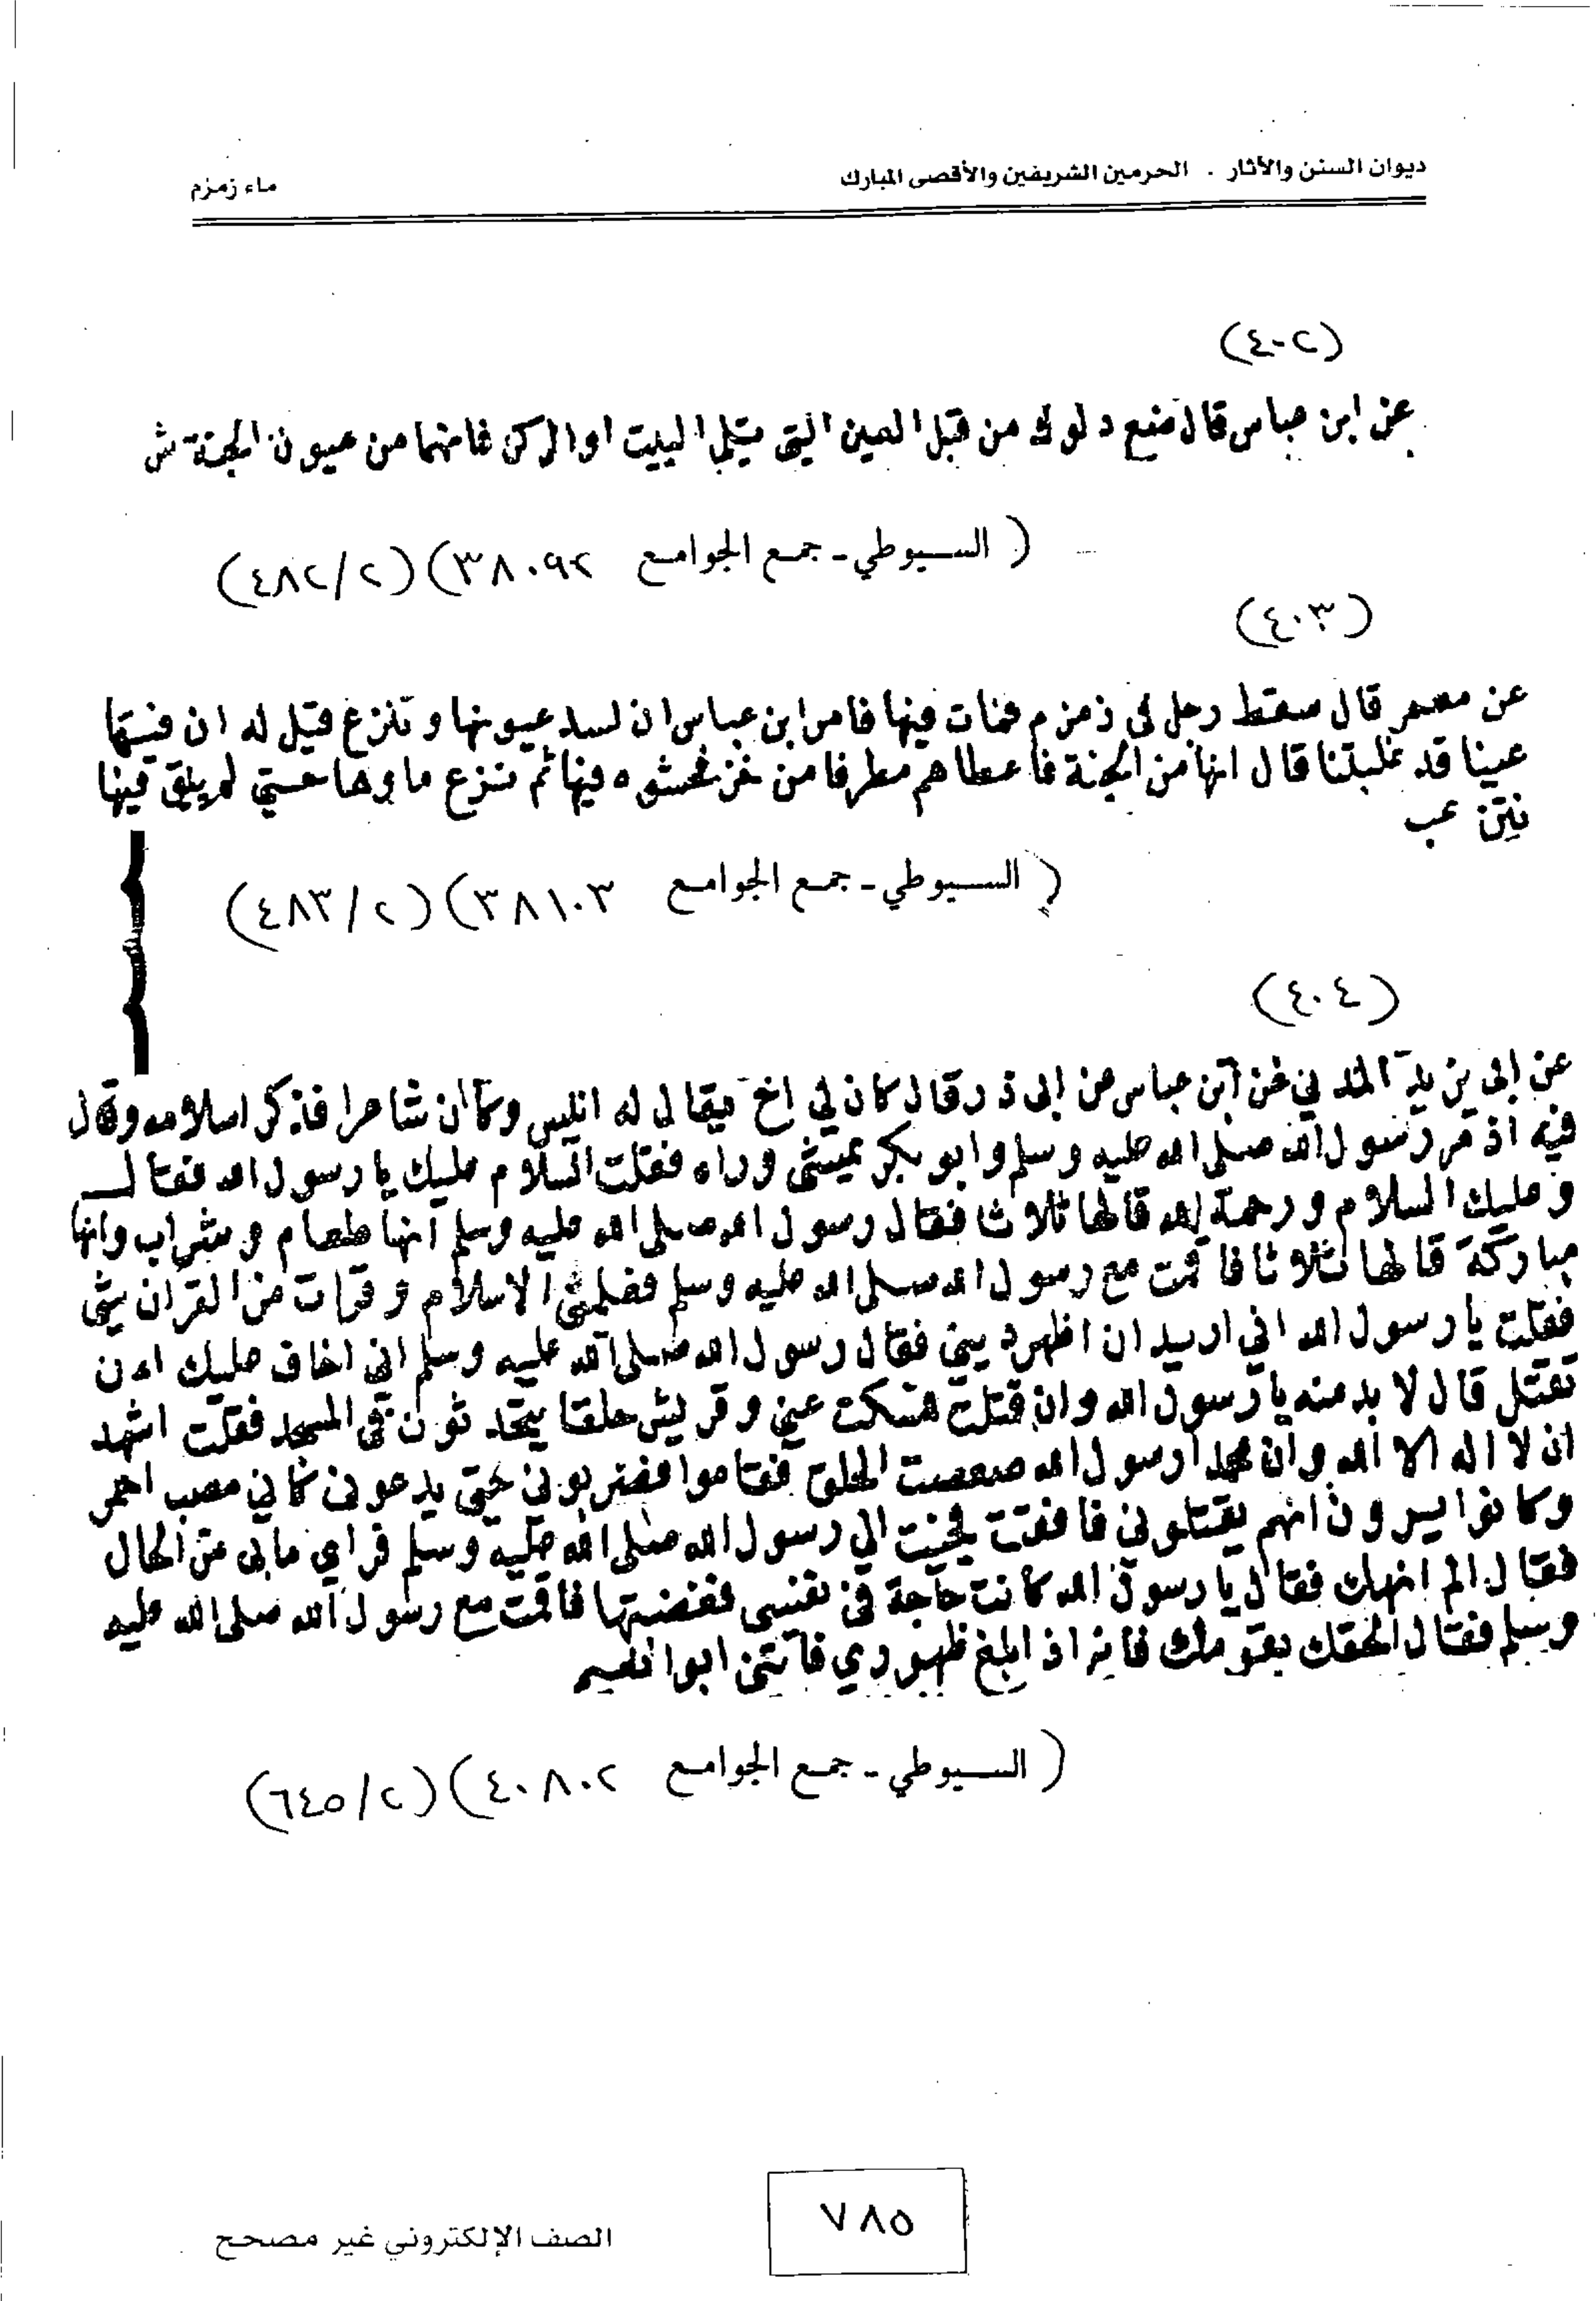 ديوان السنن والآثار . الحرمين الشريفين والأقصى المبارك
ماء زمزم
(٤٠٢)
عن ابن عباس قال ضع دلوك من قبل العين التي تلي البيت او الركن فانهما من عيون الجنة ش
( السيوطي - جمع الجوامع ٣٨٠٩٢) (٤٨٢/٢)
(٤٠٣)
عن معمر قال سقط رجل في زمزم فمات فيها فامر ابن عباس ان تسد عيونها وتنزع قيل له ان فيها
عينا قد غلبتنا قال انها من الجنة فاعطاهم مطرفا من خز فحشوه فيها ثم نزع ماوها حتي لم يبق فيها
نتن عب
( السيوطي - جمع الجوامع ٣٨١٠٣) (٤٨٣/٢)
(٤٠٤)
عن ابي يزيد المدني عن ابن عباس عن ابي ذر قال كان لي اخ يقال له انيس وكان شاعرا فذكر اسلامه وقال
فيه اذ مر رسول الله صلى الله عليه وسلم وابو بكر يمشي وراه فقلت السلام عليك يا رسول الله فقال
وعليك السلام ورحمة الله قالها ثلاثا فقال رسول الله صلى الله عليه وسلم انها طعام وشراب وانها
مباركة قالها ثلاثا فاقمت مع رسول الله صلى الله عليه وسلم فعلمني الاسلام وقرات من القران شي
فقلت يا رسول الله اني اريد ان اظهر ديني فقال رسول الله صلى الله عليه وسلم اني اخاف عليك ان
تقتل قال لا بد منه يا رسول الله وان قتلت فسكت عني وقريش حلقا يتحدثون في المسجد فقلت اشهد
ان لا اله الا الله وان محمدا رسول الله الحلق فقاموا فضربوني حتى يدعوني كاني نصب احمر
وكانوا يرون انهم يقتلوني فافقت فجئت الى رسول الله صلى الله عليه وسلم فراي مابي من الحال
فقال الم انهك فقال يا رسول الله كانت حاجة في نفسي فقضيتها فاقمت مع رسول الله صلى الله عليه
وسلم فقال الحقك بقومك فانه اذا بلغ ظهوري فاتني ابو
( السيوطي - جمع الجوامع ٤٠٨٠٢) (٦٤٥/٢)
٧٨٥
الصف الإلكتروني غير مصحح